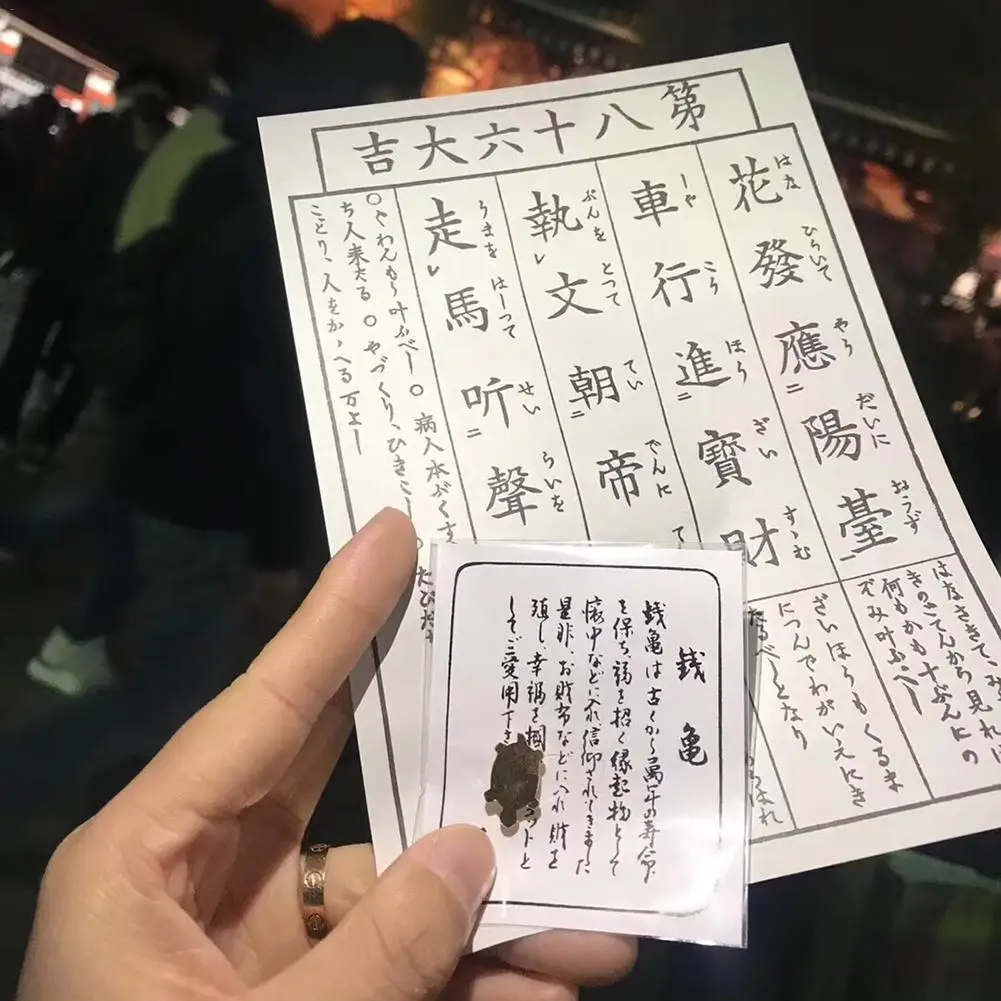 第八十六大吉
花發應陽臺
はな ひらいて やう だいに おうず
車行進寶財
しや こう ほう ざい すゝむ
執文朝帝
ぶんを とつて てい でんに
走馬听聲
うまを はしつて せい らいを
はなさきて、み
きのごてんから見れば
何もかも十ぶんにの
ぞみ叶ふべし
ざいほうもくるま
につんでわがいえにき
たるべしとなり
○ぐわんもう叶ふべし ○病人本ぶくす
ち人来たる ○やづくり、ひきこし ○たびだ
ことり、人をかゝへる万よし
銭亀
銭亀は古くから萬年の寿命
を保ち、福を招く縁起物として
懐中などに入れ、信仰されてきました
是非、お財布などに入れ財を
殖し、幸福を掴 ットと
してご愛用下さ